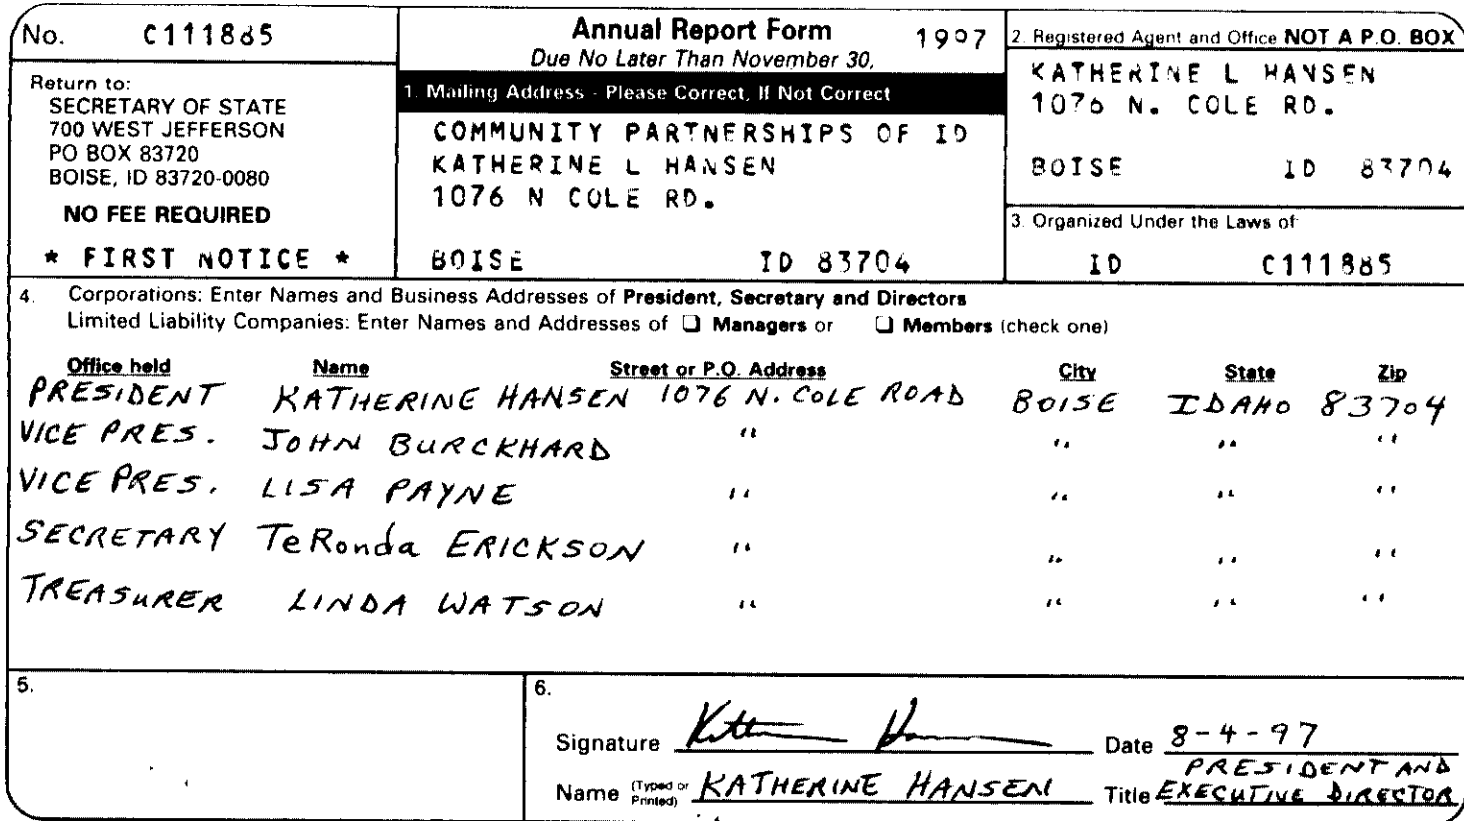 No. C111885
Return to:
SECRETARY OF STATE
700 WEST JEFFERSON
PO BOX 83720
BOISE, ID 83720-0080
NO FEE REQUIRED
* FIRST NOTICE *
Annual Report Form 1997
Due No Later Than November 30,
1. Mailing Address - Please Correct, If Not Correct
COMMUNITY PARTNERSHIPS OF ID
KATHERINE L HANSEN
1076 N COLE RD.
BOISE ID 83704
2. Registered Agent and Office NOT A P.O. BOX
KATHERINE L HANSEN
1076 N. COLE RD.
BOISE ID 83704
3. Organized Under the Laws of
ID C111885
4. Corporations: Enter Names and Business Addresses of President, Secretary and Directors
Limited Liability Companies: Enter Names and Addresses of ❑ Managers or ❑ Members (check one)
Office held Name Street or P.O. Address City State Zip
PRESIDENT KATHERINE HANSEN 1076 N. COLE ROAD BOISE IDAHO 83704
VICE PRES. JOHN BURCKHARD " " " "
VICE PRES. LISA PAYNE " " " "
SECRETARY TeRonda ERICKSON " " " "
TREASURER LINDA WATSON " " " "
5.
6.
Signature Katherine Hansen Date 8-4-97
Name (Typed or Printed) KATHERINE HANSEN Title PRESIDENT AND EXECUTIVE DIRECTOR